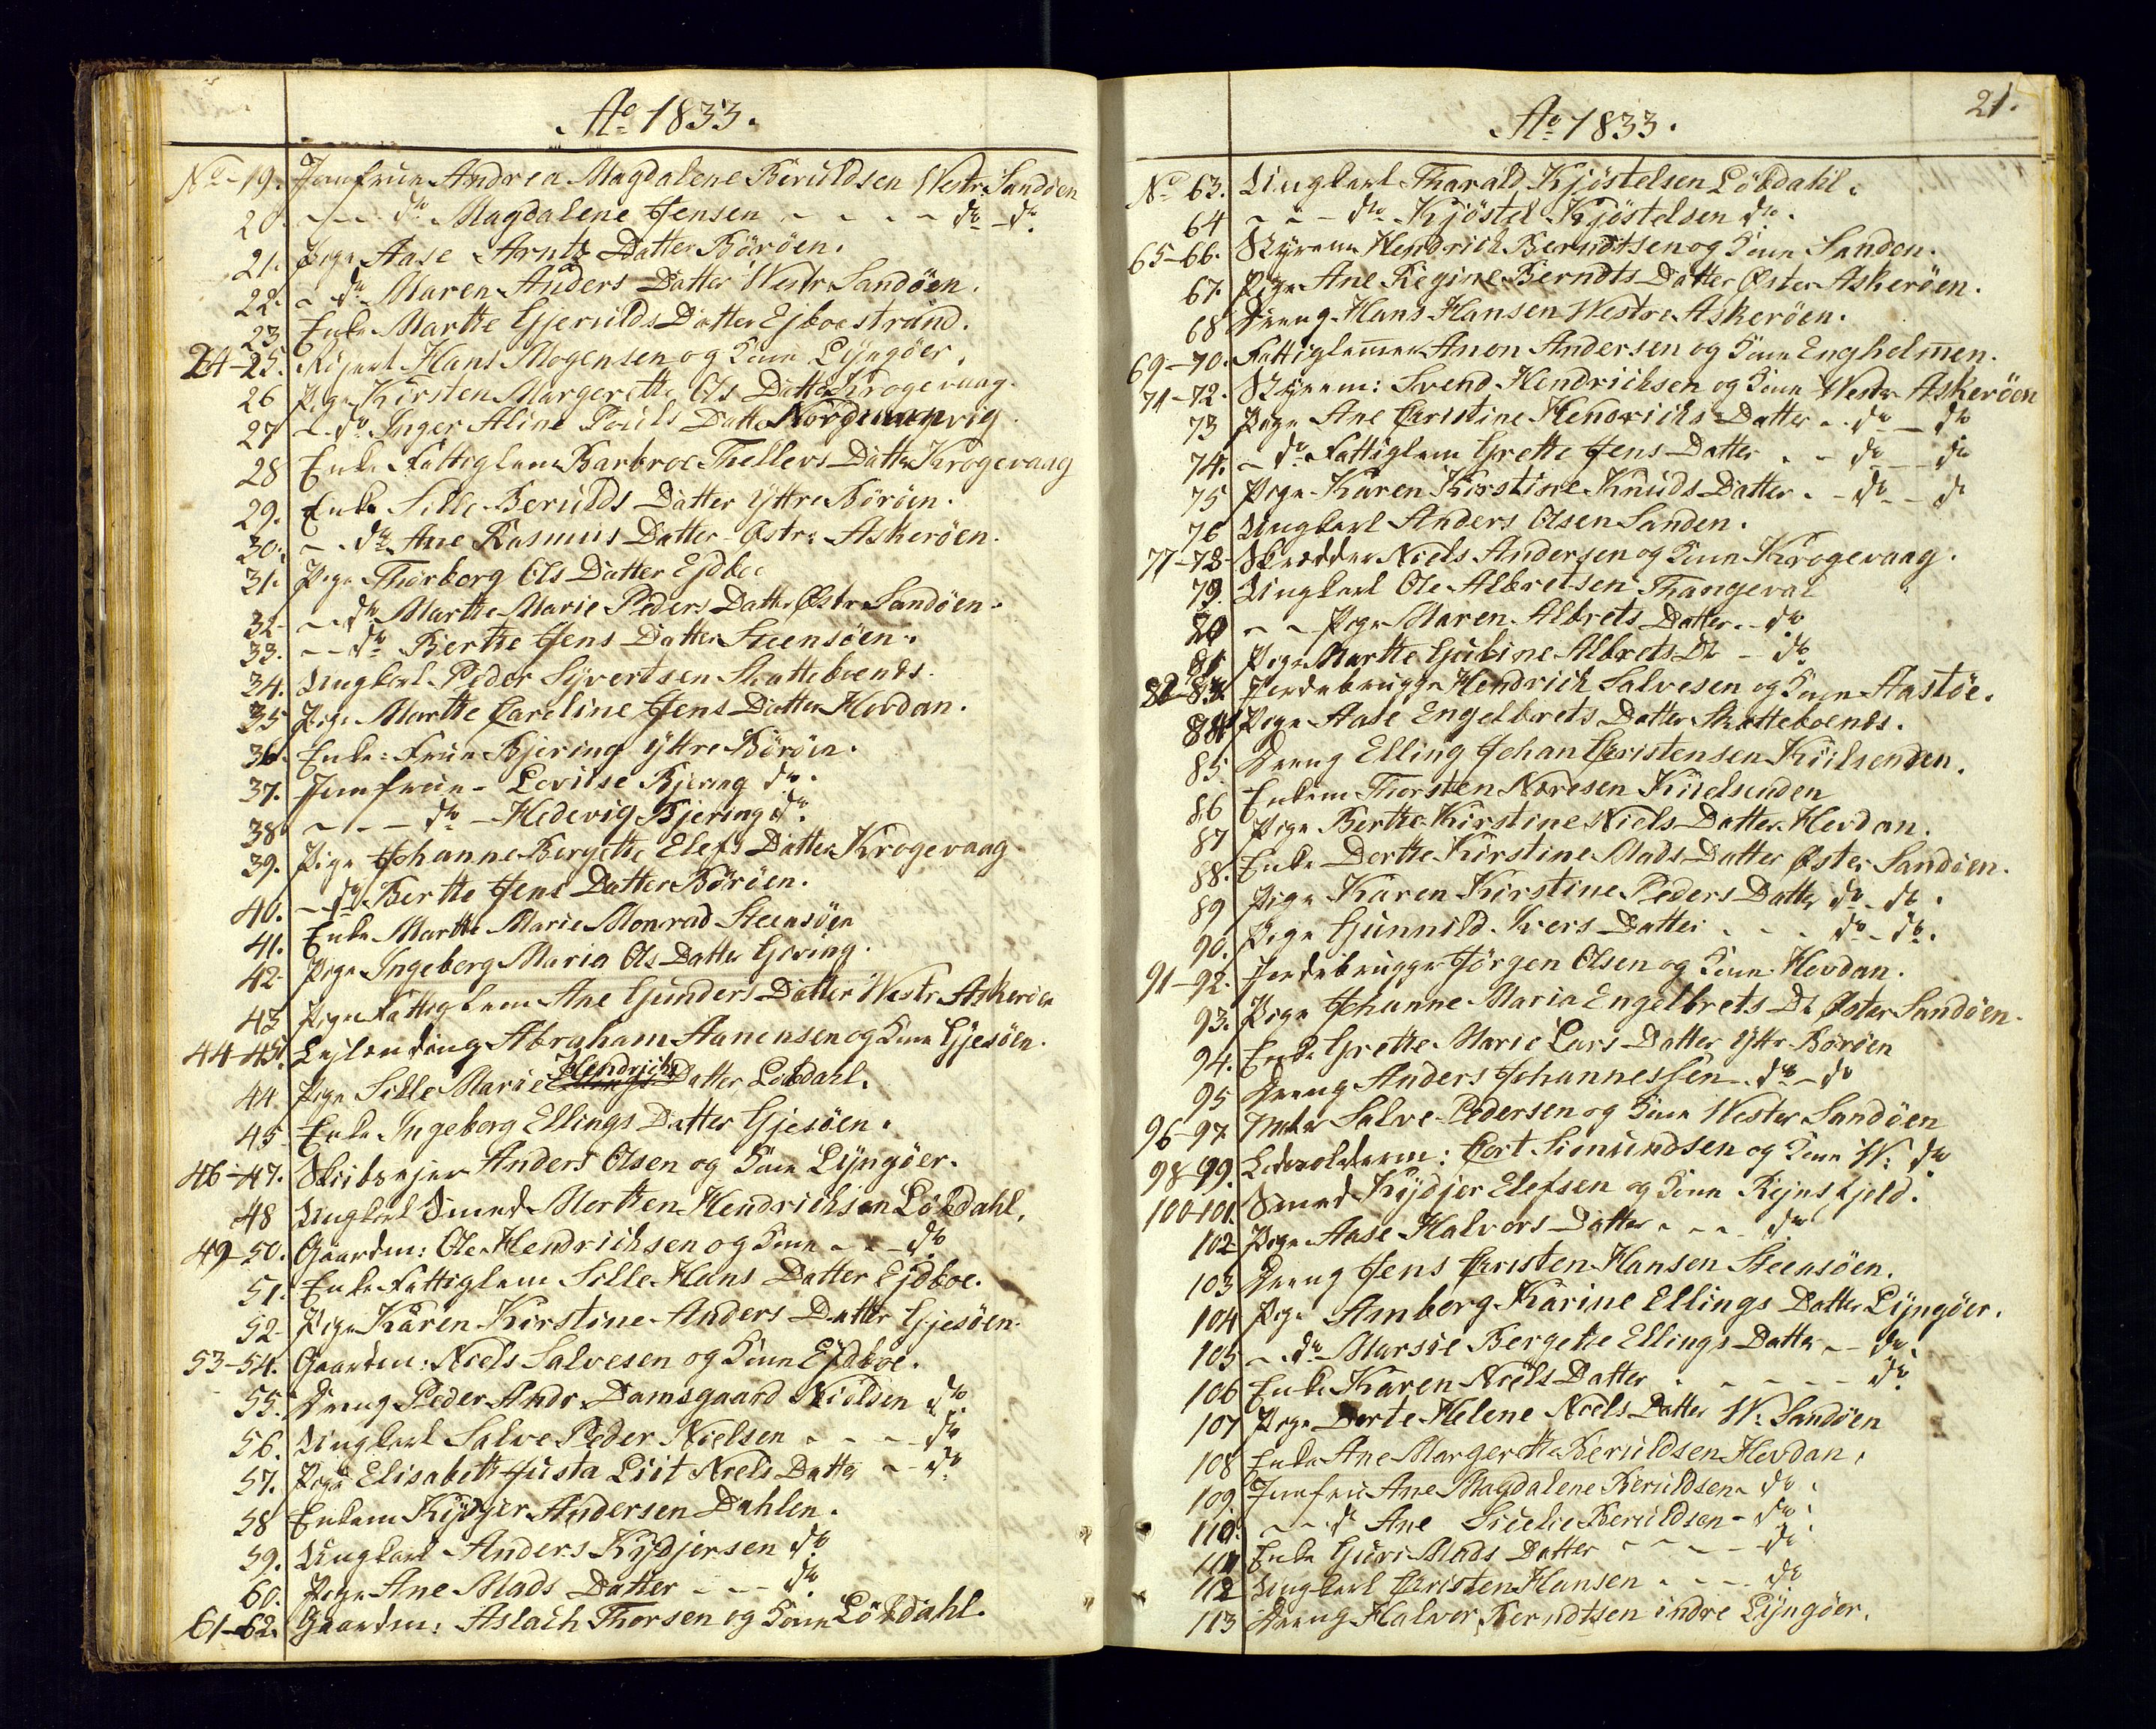 Ao 1833.
No 19. Jomfrue Andrea Magdalene Berüldsen Westr. Sandöen
20. - - do Magdalene Jensen - - - - do - do
21. Pige Aase Arntz Datter Böröen.
22. - do Maren Anders Datter Westr Sandöen.
23. Enke Marthe Gjerulds Datter Ejboestrand.
24-25. Hans Mogensen og Kone Lyngöer.
26 Pige Kirsten Margerethe Ols Datter Krogevaag.
27 - do Inger Aline Pouls Datter
28 Enke Fattiglem Barbroe Thellevs Datter Krogevaag
29. Enke Sille Berulds Datter Yttre Böröen.
30. - do Ane Rasmus Datter Østre Askeröen.
31. Pige Thorborg Ols Datter Ejdboe
32. - do Marthe Marie Peders Datter Østr. Sandöen.
33. - - do Berthe Jens Datter Steensöen.
34. Ungkarl Peder Syvertsen
35 Pige Marthe Caroline Jens Datter Hovdan.
36. Enke: Frue Bjering Yttre Böröen.
37. Jomfrue - Lovise Bjering do.
38 - - - do - Hedevig Bjering do.
39. Pige Johanne Bergethe Elefs Datter Krogevaag
40. - do Berthe Jens Datter Böröen.
41. Enke Marthe Marie Monrad Steensöen
42. Pige Ingeborg Maria Ols Datter Gjeving.
43 Pige Fattiglem Ane Gunders Datter Westr. Askeröen
44-45. Lejlending Abraham Aanensen og Kone Gjesöen.
44 Pige Sille Marie Hendrichs Datter Lökdahl.
45 Enke Ingeborg Ellings Datter Gjesöen.
46-47. Skibsejer Anders Olsen og Kone Lyngöer.
48 Ungkarl Smed Morthen Hendrichsen Lökdahl.
49-50. Gaardm: Ole Hendrichsen og Kone - - do
51. Enke Fattiglem Sille Hans Datter Ejdboe.
52. Pige Karen Kirstine Anders Datter Gjesöen.
53-54. Gaardm: Niels Salvesen og Kone Ejdboe.
55. Dreng Peder Andr. Damsgaard Nielsen do
56. Ungkarl Salve Peder Nielsen - - - do
57. Pige Elisabeth Justa Liit Niels Datter - - do
58 Enkem Kydjer Andersen Dahlen.
59. Ungkarl Anders Kydjersen do
60. Pige Ane Mads Datter - - - do
61-62. Gaardm: Aslach Thorsen og Kone Lökdahl.
21.
Ao 1833.
No 63. Ungkarl Tharald Kjöstelsen Lökdahl.
64 - - - do Kjöstel Kjöstelsen do.
65-66. Styrem. Hendrich Berndtsen og Kone Sanden.
67. Pige Ane Regine Berndts Datter Øster Askeröen.
68 Dreng Hans Hansen Westre Askeröen.
69-70. Fattiglemmer Anon Andersen og Kone Engholmen.
71-72. Styrem: Svend Hendrichsen og Kone Westr Askeröen
73 Pige Ane Christine Hendrichs Datter - do - do
74. - do Fattiglem Grethe Jens Datter - - do - do
75 Pige Karen Kirstine Knuds Datter - do - do
76 Ungkarl Anders Olsen Sanden.
77-78 Skrædder Niels Andersen og Kone Krogevaag.
79. Ungkarl Ole Albretsen Thangeval
80 - - Pige Maren Albrets Datter - do
81 Pige Marthe Gurine Albrets Dt - do
82-83 Jordebrugger Hendrich Salvesen og Kone Aastöe.
84 Pige Aase Engelbrets Datter
85 Dreng Elling Johan Christensen Kiilsunden.
86 Enkem Thorsten Noresen Kiilsunden
87 Pige Berthe Kirstine Niels Datter Hovdan.
88. Enke Dorthe Kirstine Mads Datter Øster Sandöen.
89 Pige Karen Kirstine Peders Datter do - do.
90. Pige Gunnild Ivers Datter - - - do - do.
91-92. Jordebrugger Jörgen Olsen og Kone Hovdan.
93. Pige Johanne Maria Engelbrets Dt Øster Sandöen.
94. Enke Grethe Marie Lars Datter Yttr Böröen
95 Dreng Anders Johannessen - do - do
96-97 Salve Pedersen og Kone Wester Sandöen
98-99. Cort Simundsen og Kone W: do
100-101. Smed Kydjer Elefsen og Kone Rejnsfjeld.
102 Pige Aase Halvors Datter - - - do
103 Dreng Jens Christen Hansen Steensöen.
104 Pige Amborg Karine Ellings Datter Lyngöer.
105 - do Marsie Bergethe Ellings Datter - - do.
106 Enke Karen Niels Datter - - - - - do
107 Pige Dorte Helene Niels Datter W: Sandöen
108 Enke Ane Margerethe Beruldsen Hovdan,
109. Jomfru Ane Magdalene Beruldsen do.
110. - - do Ane Beruldsen - do.
111 Enke Guri Mads Datter - - - - do
112 Ungkarl Christen Hansen - - - do
113 Dreng Halvor Berndtsen indre Lyngöer.